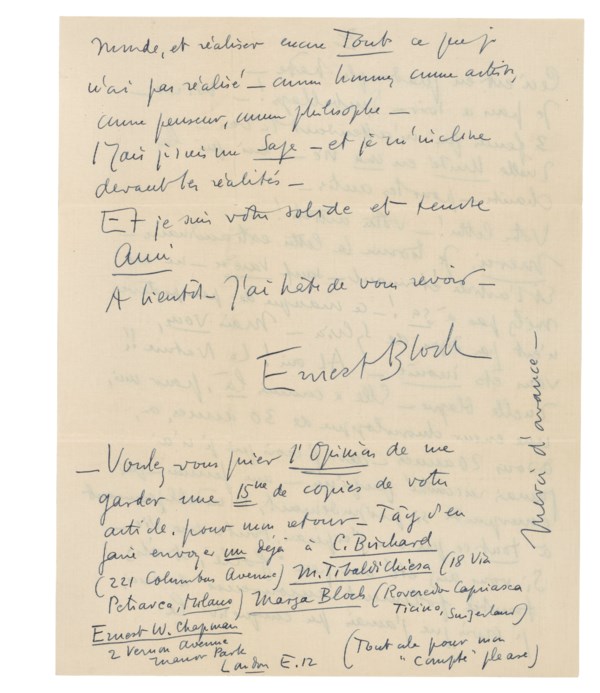 monde, et réaliser encore Tout ce que je
n'ai pas réalisé — comme homme, comme artiste,
comme penseur, comme philosophe —
Mais je suis un Sage — et je m'incline
devant les réalités —
Et je suis votre solide et tendre
Ami
A bientôt — J'ai hâte de vous revoir —
Ernest Bloch
— Voulez vous prier l'Opinion de me
garder une 15ne de copies de votre
article. pour mon retour — d'en
faire envoyer un déjà à C. Birchard
(221 Columbus Avenue) M. Tibaldi Chiesa (18 Via
Petrarca, Milano) Marga Bloch (Roveredo Capriasca
Ticino, Switzerland)
Ernest W. Chapman
2 Vernon Avenue
Manor Park
London E.12
(Tout cela pour mon
"compte" please)
Merci d'avance —